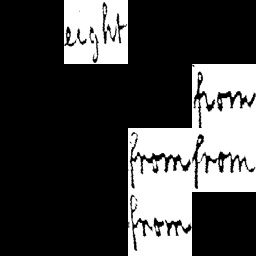 eight
from
from from
from